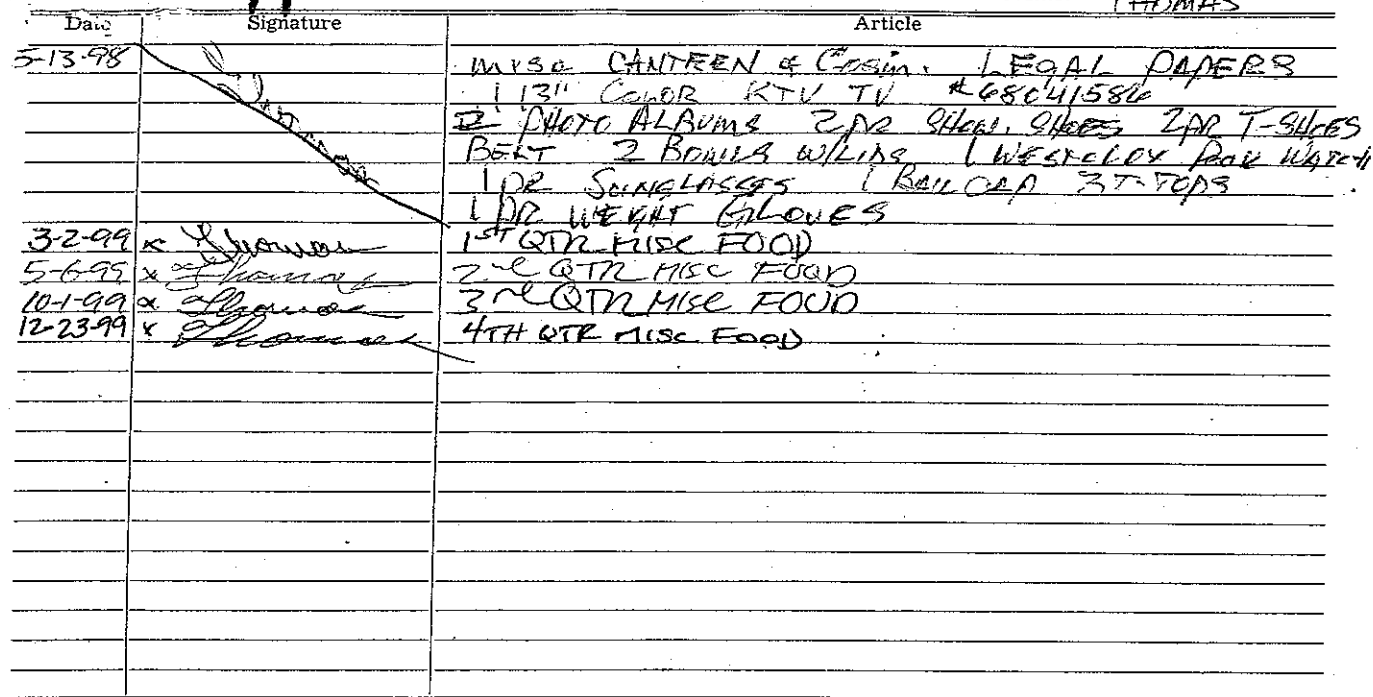 THOMAS
Date Signature Article
5-13-98 MISC CANTEEN & Cosm. LEGAL PAPERS
1 13" COLOR KTV TV #68041586
2 PHOTO ALBUMS 2 PR SHOW. SHOES 2 PR T-SHOES
BELT 2 BOWLS W/LIDS 1 WESTCLOX POCK WATCH
1 PR SUNGLASSES 1 BALL CAP 3 T-TOPS
1 PR WEIGHT GLOVES
3-2-99 x Thomas 1ST QTR MISC FOOD
5-6-99 x Thomas 2nd QTR MISC FOOD
10-1-99 x Thomas 3rd QTR MISC FOOD
12-23-99 x Thomas 4TH QTR MISC FOOD